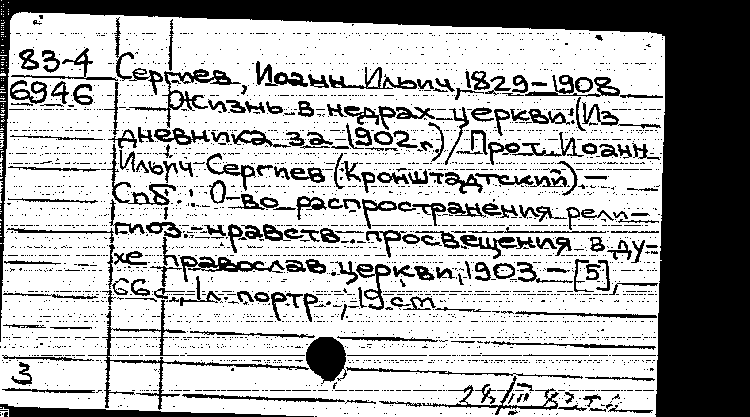 83-4
6946
Сергиев, Иоанн Ильич, 1829-1908
Жизнь в недрах церкви: (Из
дневника за 1902 г.) / Прот. Иоанн
Ильич Сергиев (Кронштадтский). —
Спб. : О-во распространения рели-
гиоз.-нравств. просвещения в ду-
хе православ. церкви, 1903. — [5],
66 с., 1 л. портр. ; 19 см.
3